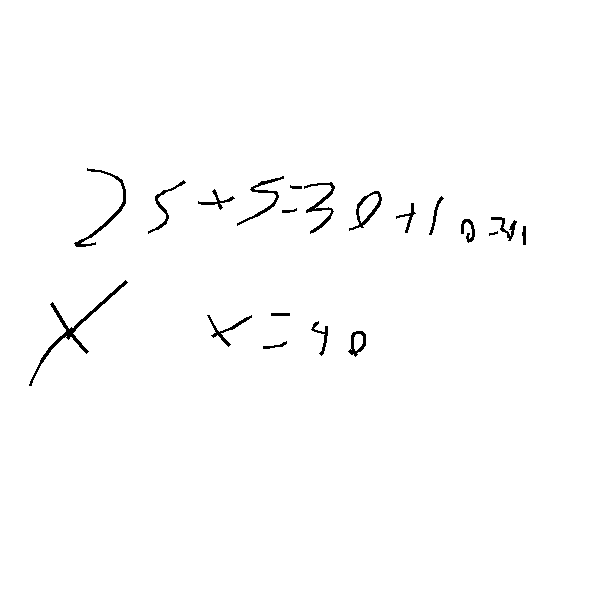 25+5=30+10
x x=40